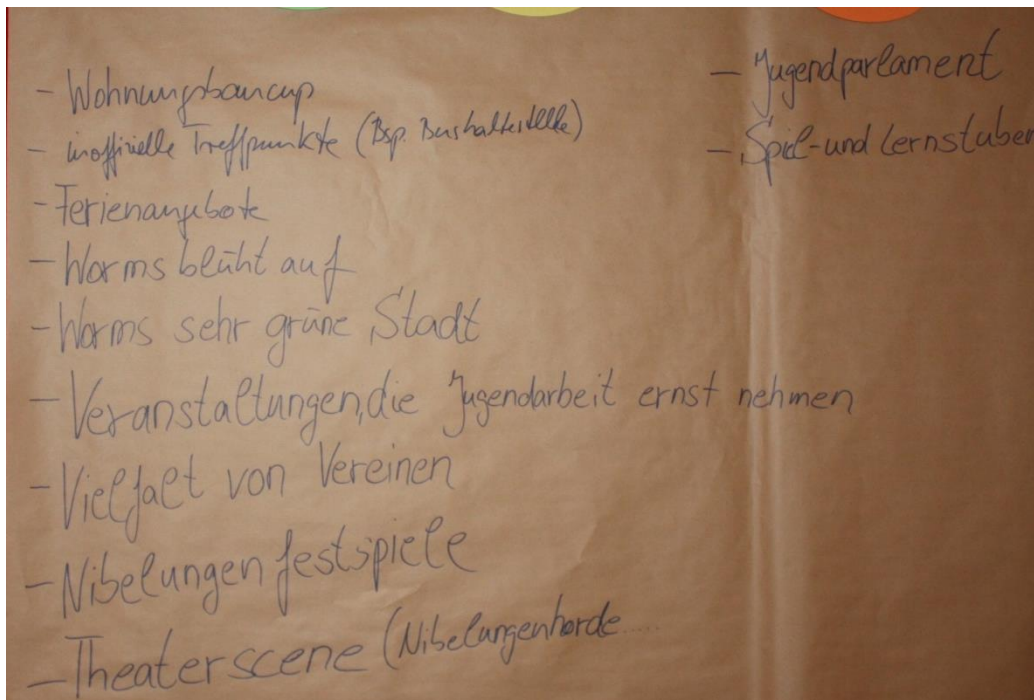 - Wohnungsbaucup
- inoffizielle Treffpunkte (Bsp. Bushaltestelle)
- Ferienangebote
- Worms blüht auf
- Worms sehr grüne Stadt
- Veranstaltungen, die Jugendarbeit ernst nehmen
- Vielfalt von Vereinen
- Nibelungenfestspiele
- Theaterscene (Nibelungenhorde.....
- Jugendparlament
- Spiel- und Lernstuben